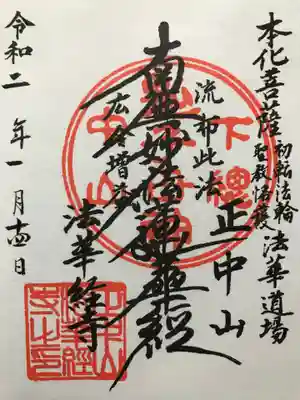 本化菩薩初転法輪
聖教格護法華道場
正中山
流布此法
南無妙法蓮華経
広令増益
法華経寺
令和二年一月十四日